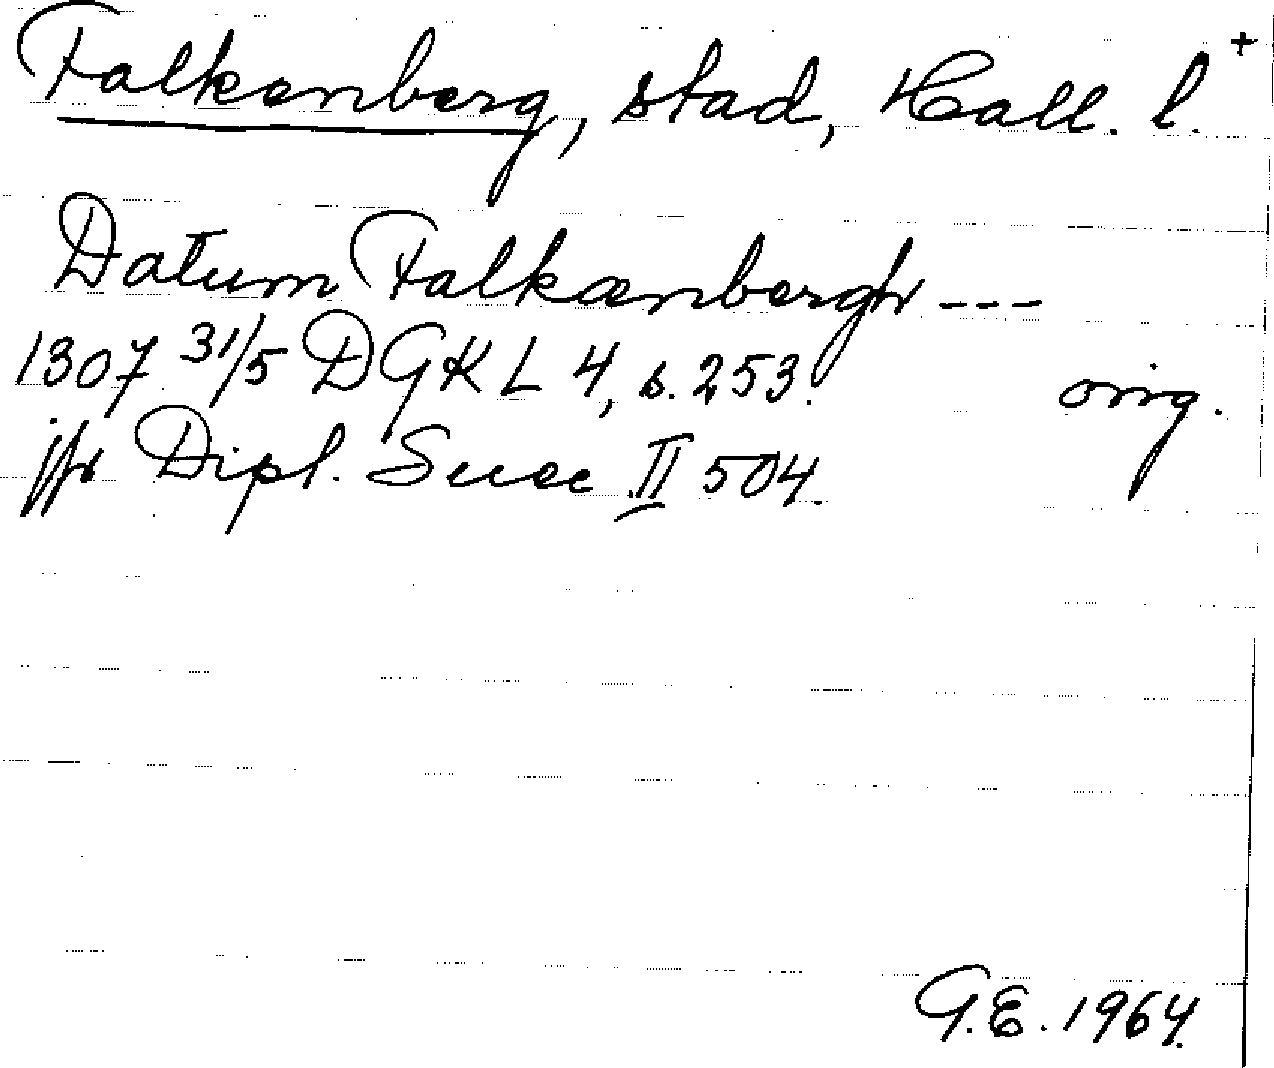 Falkenberg, stad, Hall. l. +
Datum Falkænbergh ---
1307 31/5 DGKL 4, s. 253. orig.
jfr Dipl. Suec II 504.
G.E. 1964.